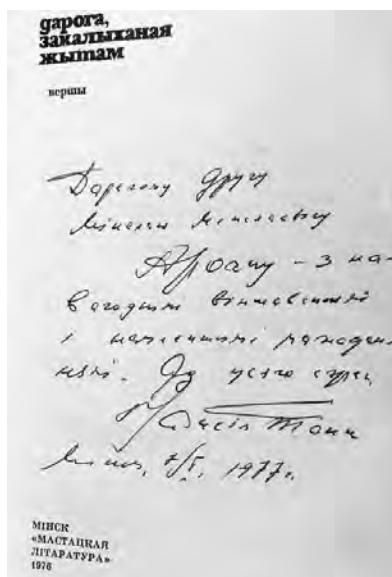 дарога,
закалыханая
жытам
вершы
Дарагому другу
Міхасю
Арочку – з на-
вагоднімі віншаваннямі
і найлепшымі пажадан-
нямі. Ад усяго сэрца
Максім Танк
Мінск, 1977 г.
МІНСК
«МАСТАЦКАЯ
ЛІТАРАТУРА»
1976